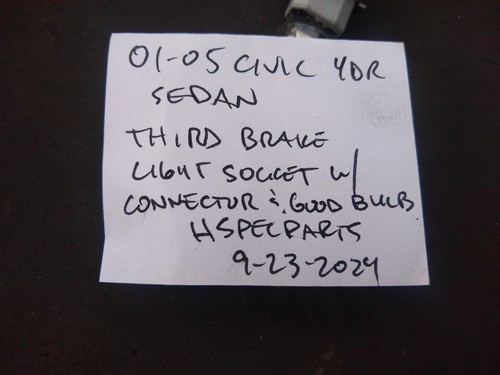 01-05 CIVIC 4DR
SEDAN
THIRD BRAKE
LIGHT SOCKET W/
CONNECTOR & GOOD BULB
HSPECPARTS
9-23-2024